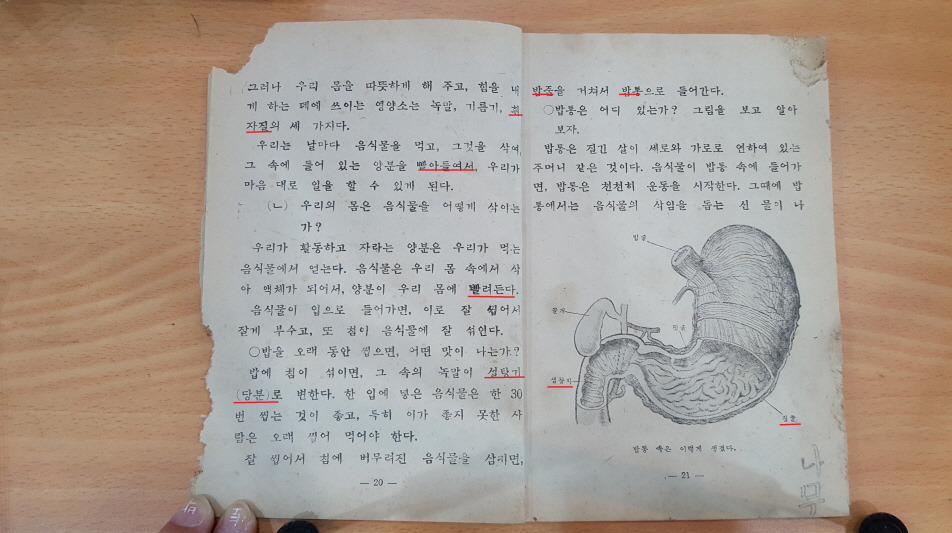 그러나 우리 몸을 따뜻하게 해 주고, 힘을 내
게 하는 데에 쓰이는 영양소는 녹말, 기름기, 흰
자질의 세 가지다.
우리는 날마다 음식물을 먹고, 그것을 삭여,
그 속에 들어 있는 양분을 빨아들여서, 우리가
마음 대로 일을 할 수 있게 된다.
(ㄴ) 우리의 몸은 음식물을 어떻게 삭이는
가?
우리가 활동하고 자라는 양분은 우리가 먹는
음식물에서 얻는다. 음식물은 우리 몸 속에서 삭
아 액체가 되어서, 양분이 우리 몸에 빨려든다.
음식물이 입으로 들어가면, 이로 잘 씹어서
잘게 부수고, 또 침이 음식물에 잘 섞인다.
○밥을 오래 동안 씹으면, 어떤 맛이 나는가?
밥에 침이 섞이면, 그 속의 녹말이 설탕기
(당분)로 변한다. 한 입에 넣은 음식물은 한 30
번 씹는 것이 좋고, 특히 이가 좋지 못한 사
람은 오래 씹어 먹어야 한다.
잘 씹어서 침에 버무려진 음식물을 삼키면,
— 20 —
밥줄을 거쳐서 밥통으로 들어간다.
○밥통은 어디 있는가? 그림을 보고 알아
보자.
밥통은 질긴 살이 세로와 가로로 연하여 있는
주머니 같은 것이다. 음식물이 밥통 속에 들어가
면, 밥통은 천천히 운동을 시작한다. 그때에 밥
통에서는 음식물의 삭임을 돕는 신 물이 나
밥줄
쓸개
샘창자
밥통 속은 이렇게 생겼다.
— 21 —
나
무